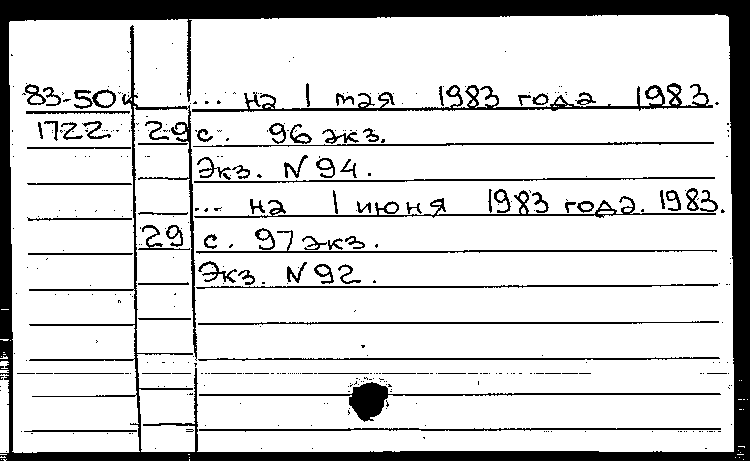 83-50к ... на 1 мая 1983 года. 1983.
1722 29 с. 96 экз.
Экз. N 94.
... на 1 июня 1983 года. 1983.
29 с. 97 экз.
Экз. N 92.